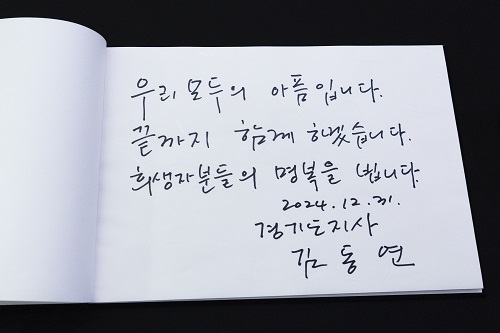 우리 모두의 아픔입니다.
끝까지 함께 하겠습니다.
희생자분들의 명복을 빕니다.
2024. 12. 31.
경기도지사
김동연